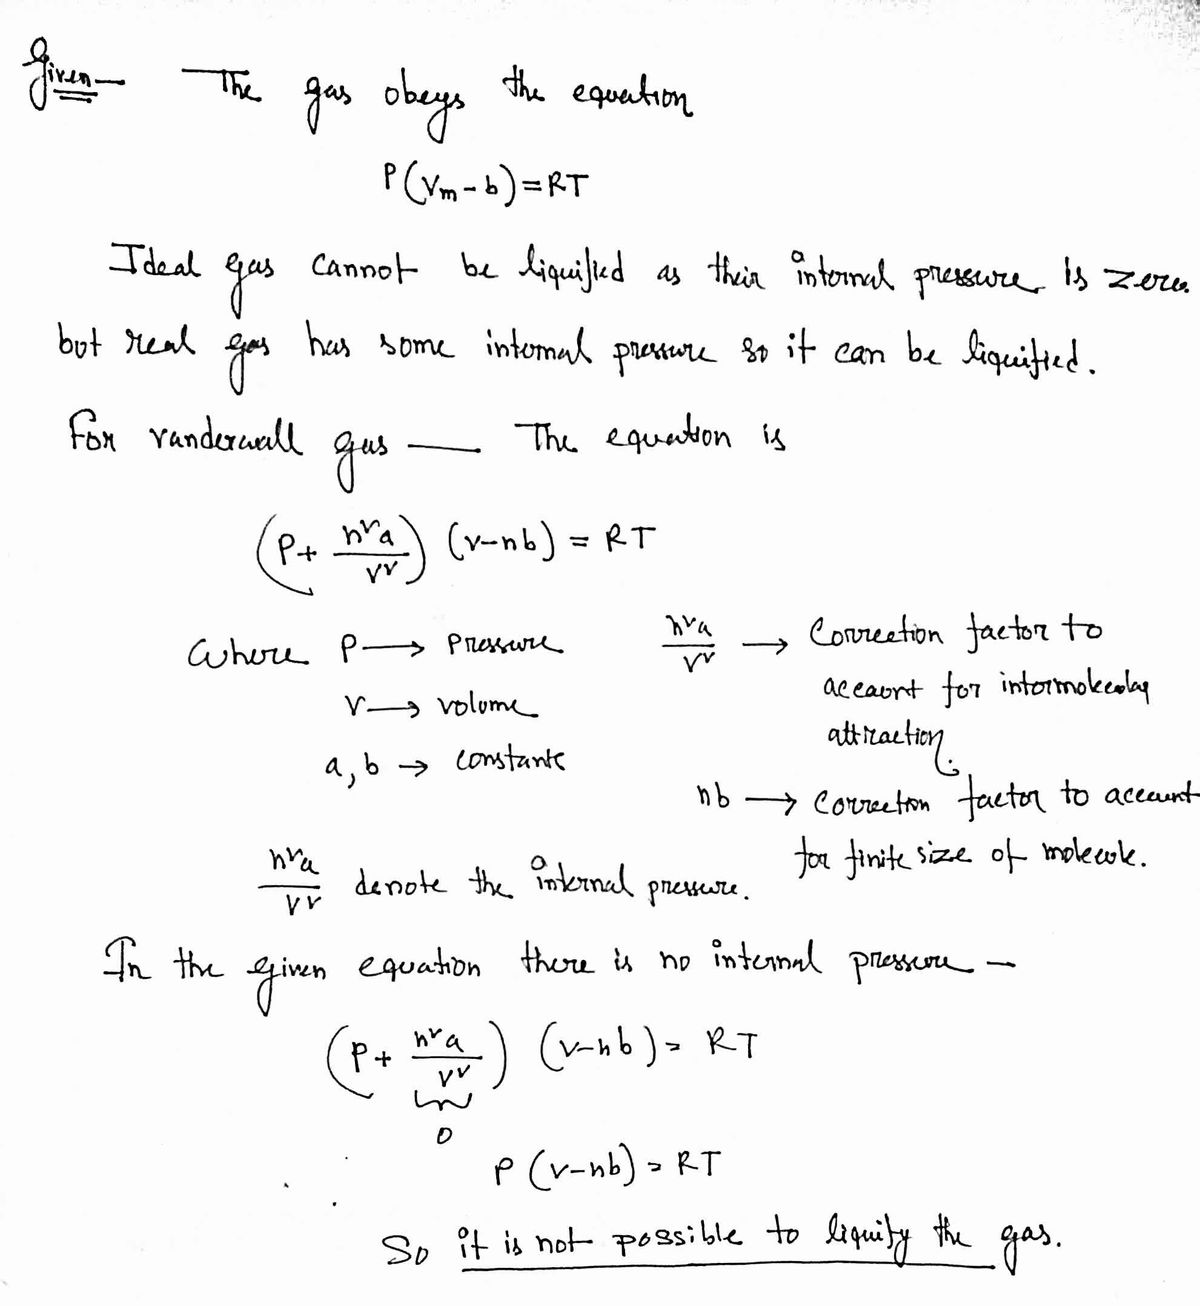 Given— The gas obeys the equation
P(Vm-b)=RT
Ideal gas cannot be liquified as their internal pressure is zero.
but real gas has some internal pressure so it can be liquified.
For vanderwall gas — The equation is
(P+ n²a/V²) (v-nb) = RT
where P → Pressure
V → volume
a, b → constants
n²a/V² → Correction factor to
account for intermolecular
attraction.
nb → Correction factor to account
for finite size of molecule.
n²a/V² denote the internal pressure.
In the given equation there is no internal pressure —
(P+ n²a/V²) (v-nb) = RT
0
P (v-nb) = RT
So it is not possible to liquify the gas.